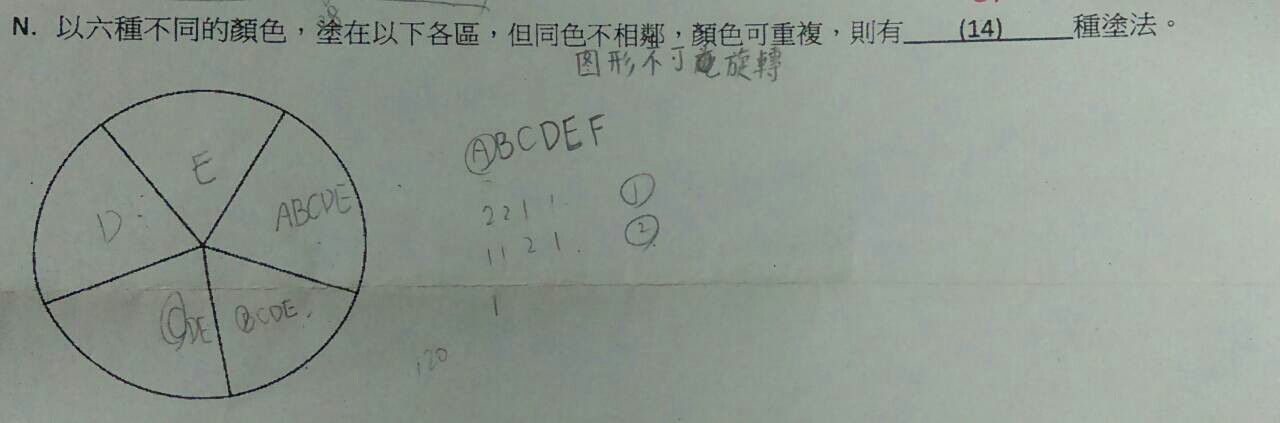 N. 以六種不同的顏色，塗在以下各區，但同色不相鄰，顏色可重複，則有 (14) 種塗法。
图形不可旋轉
ABCDEF
E
ABCDE
D
2 2 1 1 ①
1 1 2 1 ②
CDE BCDE
1
120